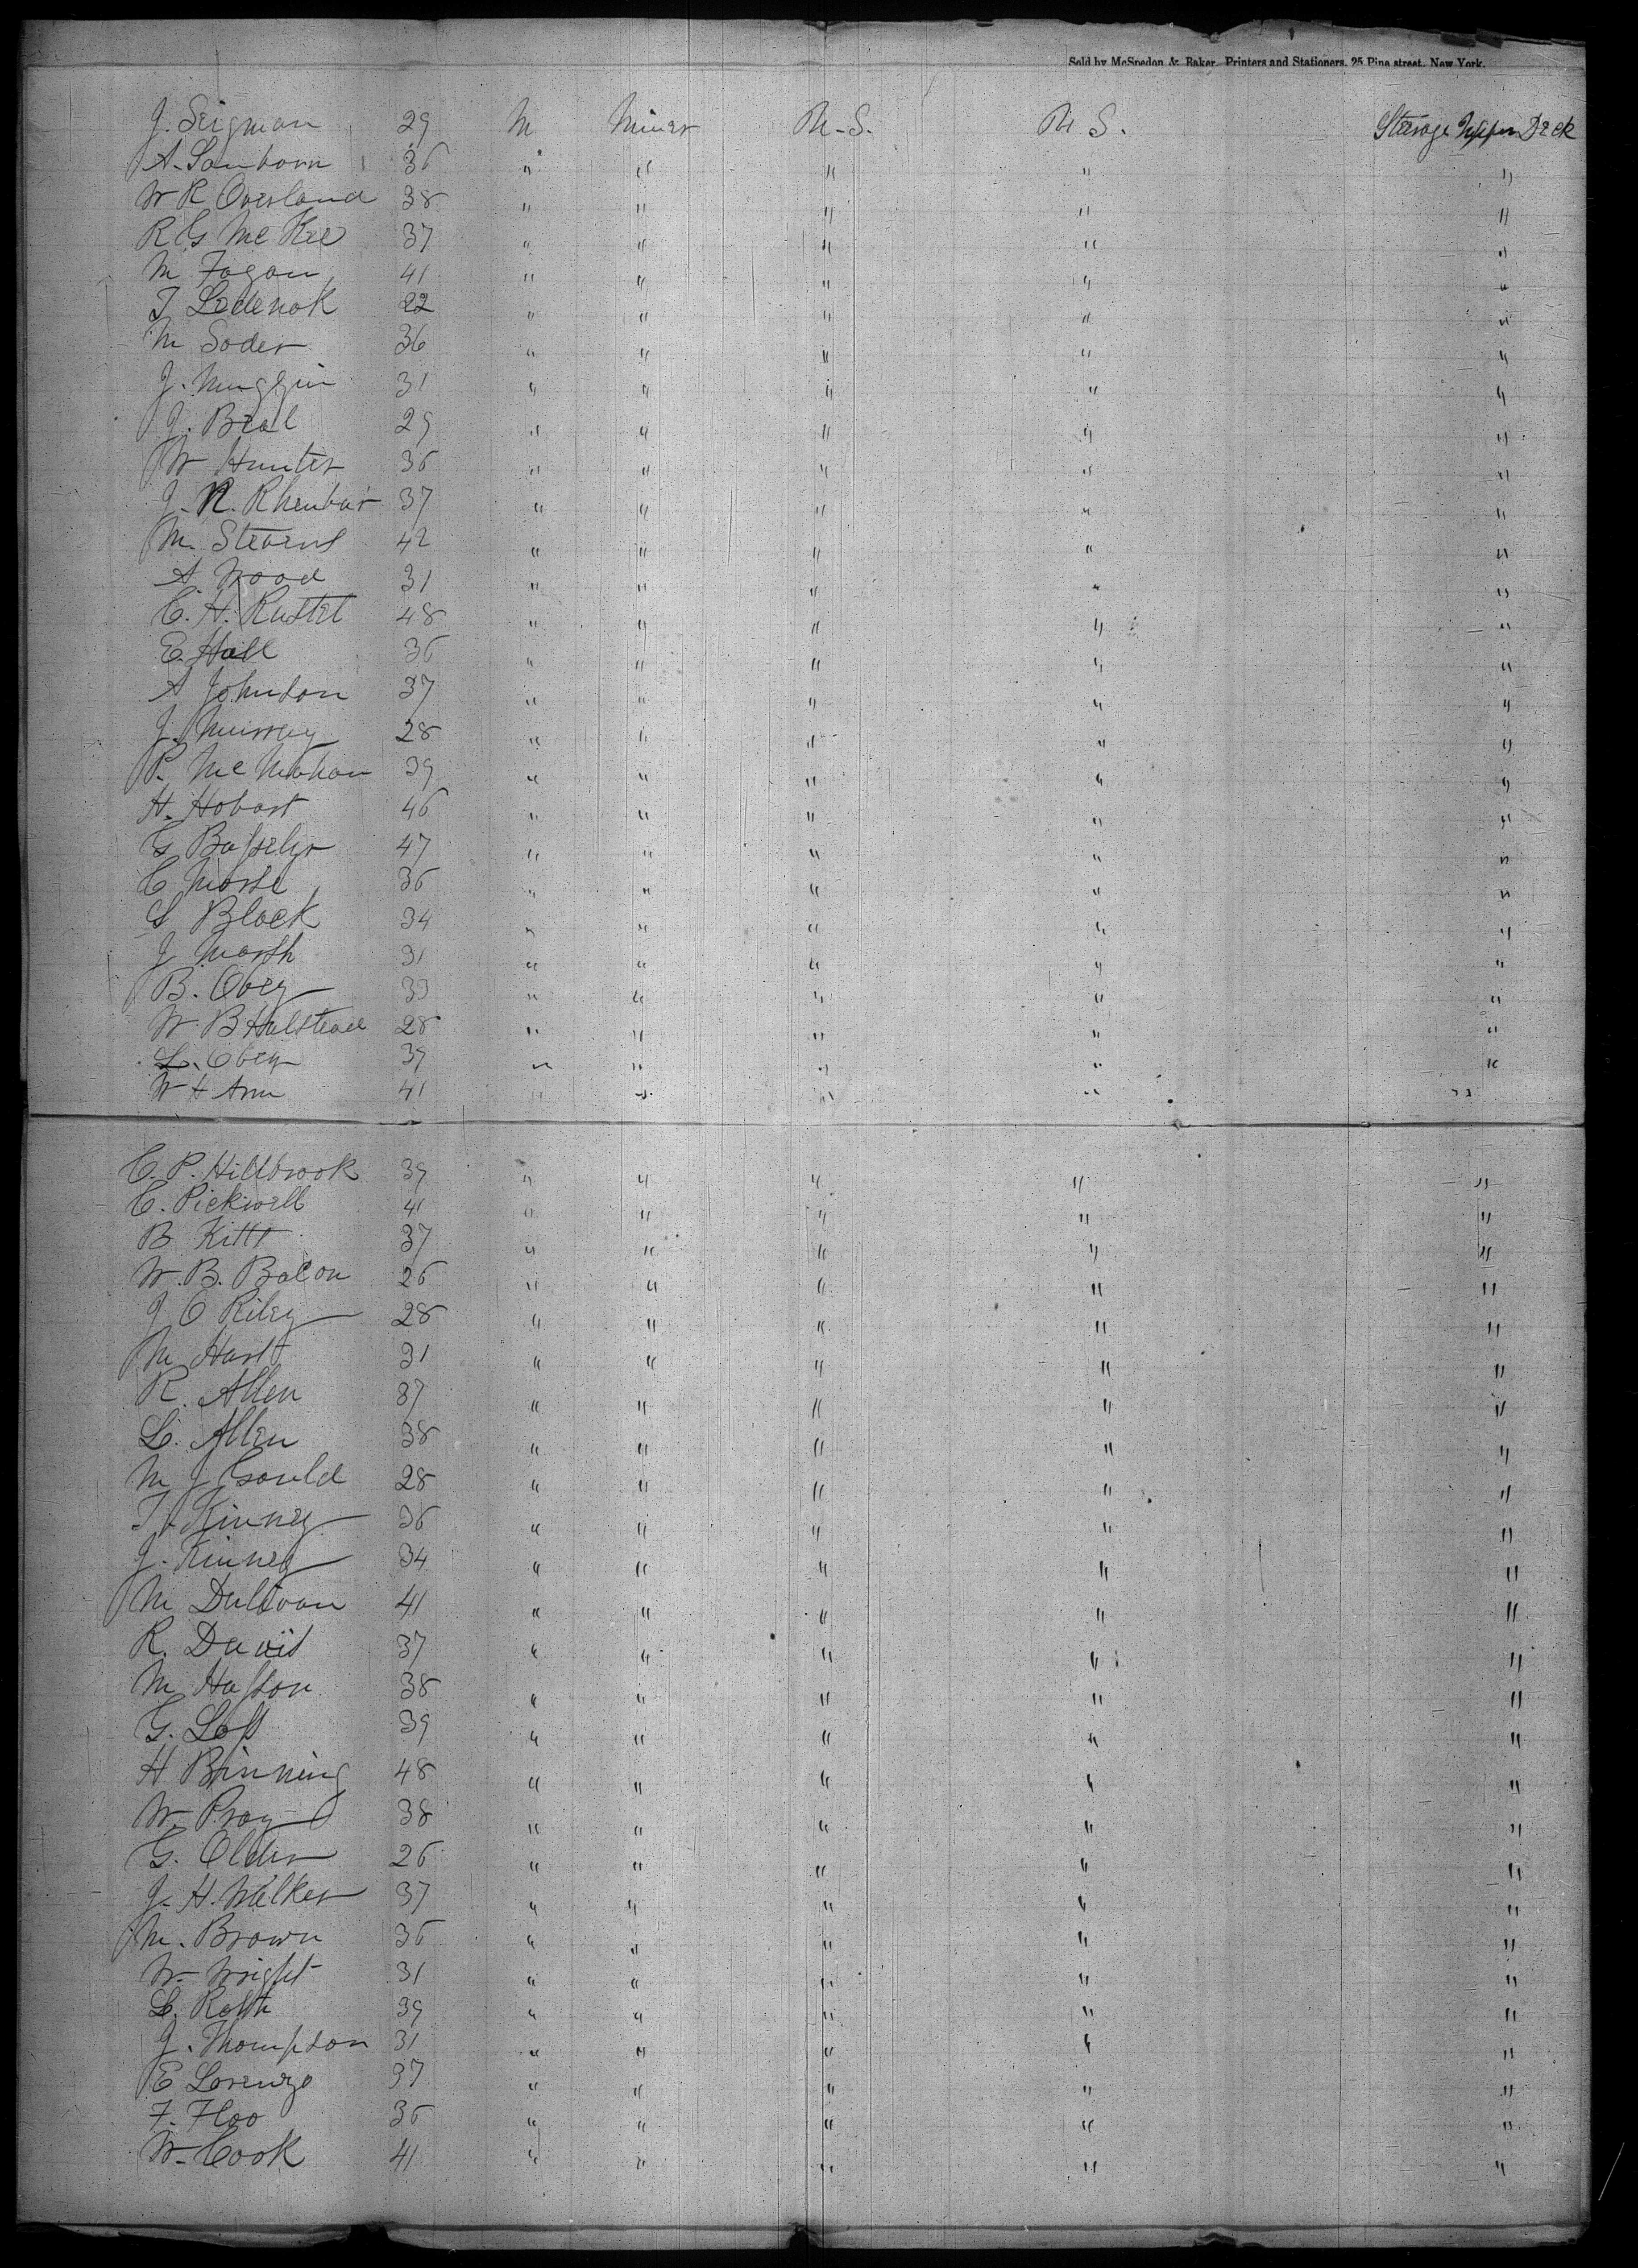 Sold by McSpedon & Baker, Printers and Stationers, 25 Pine street, New York.
J. Seigman 29 M Miner U-S. U S. Steerage Upper Deck
A. Sanborn 36 " " " " "
W R Overland 38 " " " " "
R G McKee 37 " " " " "
M Fagan 41 " " " " "
22 " " " " "
M Soder 36 " " " " "
J. 31 " " " " "
J. Beal 29 " " " " "
W Hunter 36 " " " " "
J. R. 37 " " " " "
M. Stevens 42 " " " " "
A. Wood 31 " " " " "
C. H. 48 " " " " "
E. Hall 36 " " " " "
A Johnson 37 " " " " "
J. Murray 28 " " " " "
P. McMahon 39 " " " " "
H. Hobart 46 " " " " "
G 47 " " " " "
C Morse 36 " " " " "
S Black 34 " " " " "
J Marsh 31 " " " " "
B. Obey 33 " " " " "
W B Halstead 28 " " " " "
L. Obey 39 " " " " "
W H Ann 41 " " " " "
C. P. Hillbrook 39 " " " " "
C. Pickwell 41 " " " " "
B Kitts 37 " " " " "
W. B. Bacon 26 " " " " "
J O Riley 28 " " " " "
M Hart 31 " " " " "
R. Allen 37 " " " " "
L. Allen 38 " " " " "
M J Gould 28 " " " " "
T. Kinney 36 " " " " "
J. Kinney 34 " " " " "
M 41 " " " " "
R. Davis 37 " " " " "
M Hasson 38 " " " " "
G. Loss 39 " " " " "
H Binning 48 " " " " "
W. Pray 38 " " " " "
G. Older 26 " " " " "
J. H. Walker 37 " " " " "
M. Brown 36 " " " " "
W. Wright 31 " " " " "
L. Roth 39 " " " " "
J. Thompson 31 " " " " "
E Lorenzo 37 " " " " "
F. Floo 36 " " " " "
W. Cook 41 " " " " "